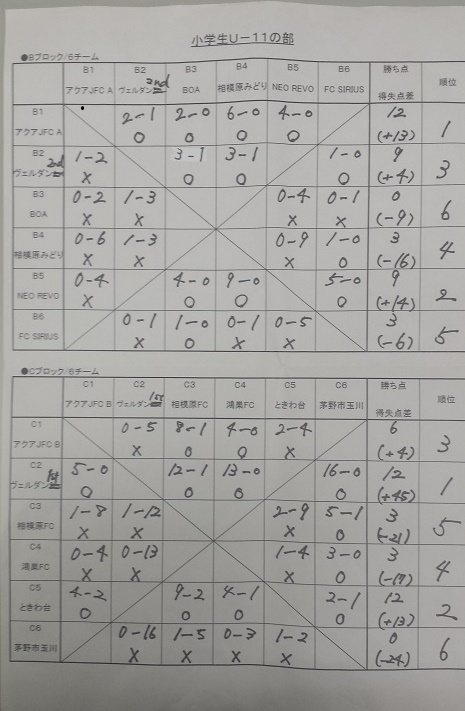 小学生U-11の部
●Bブロック/6チーム
B1 B2 B3 B4 B5 B6 勝ち点 順位
アクアJFC A ヴェルダン2nd BOA 相模原みどり NEO REVO FC SIRIUS 得失点差
B1 アクアJFC A 2-1 ○ 2-0 ○ 6-0 ○ 4-0 ○ 12 (+13) 1
B2 ヴェルダン2nd 1-2 × 3-1 ○ 3-1 ○ 1-0 ○ 9 (+4) 3
B3 BOA 0-2 × 1-3 × 0-4 × 0-1 × 0 (-9) 6
B4 相模原みどり 0-6 × 1-3 × 0-9 × 1-0 ○ 3 (-16) 4
B5 NEO REVO 0-4 × 4-0 ○ 9-0 ○ 5-0 ○ 9 (+14) 2
B6 FC SIRIUS 0-1 × 1-0 ○ 0-1 × 0-5 × 3 (-6) 5
●Cブロック/6チーム
C1 C2 C3 C4 C5 C6 勝ち点 順位
アクアJFC B ヴェルダン1st 相模原FC 鴻巣FC ときわ台 茅野市玉川 得失点差
C1 アクアJFC B 0-5 × 8-1 ○ 4-0 ○ 2-4 × 6 (+4) 3
C2 ヴェルダン1st 5-0 ○ 12-1 ○ 13-0 ○ 16-0 ○ 12 (+45) 1
C3 相模原FC 1-8 × 1-12 × 2-9 × 5-1 ○ 3 (-21) 5
C4 鴻巣FC 0-4 × 0-13 × 1-4 × 3-0 ○ 3 (-17) 4
C5 ときわ台 4-2 ○ 9-2 ○ 4-1 ○ 2-1 ○ 12 (+13) 2
C6 茅野市玉川 0-16 × 1-5 × 0-3 × 1-2 × 0 (-24) 6